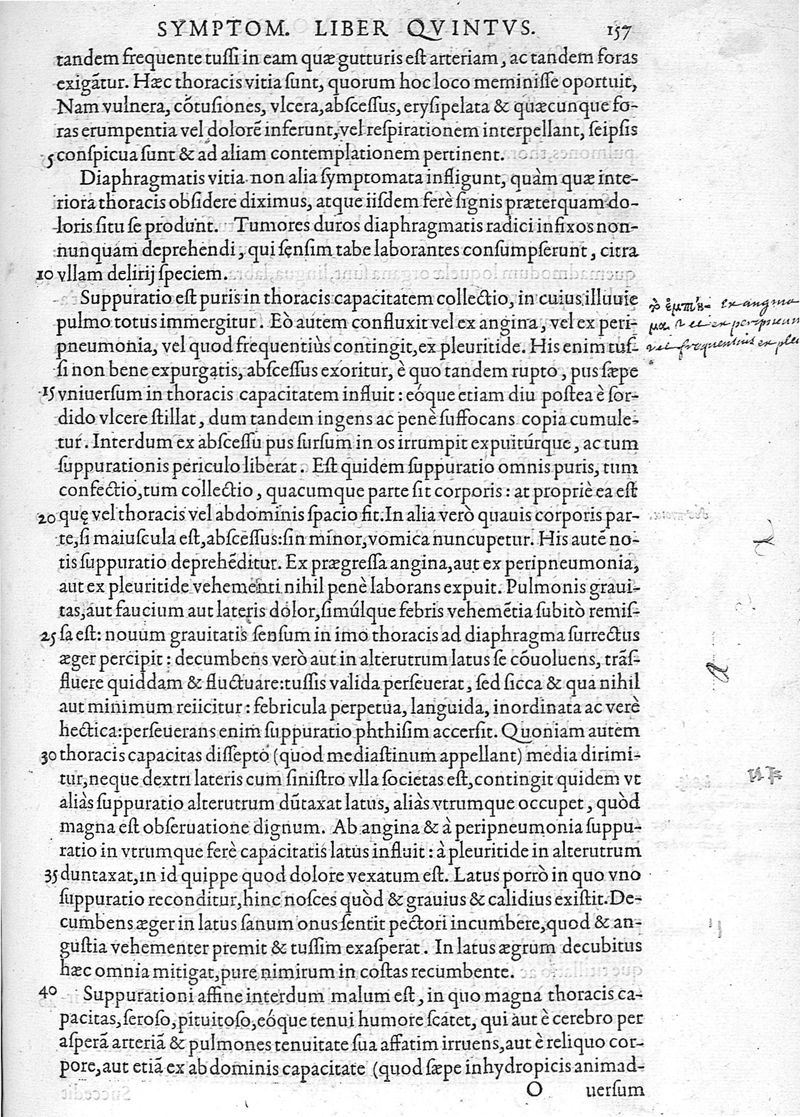 SYMPTOM. LIBER QVINTVS. 157
tandem frequente tuſſi in eam quæ gutturis eſt arteriam, ac tandem foras
exigãtur. Hæc thoracis vitia ſunt, quorum hoc loco meminiſſe oportuit,
Nam vulnera, cõtuſiones, vlcera, abſceſſus, eryſipelata & quæcunque fo-
ras erumpentia vel dolorẽ inferunt, vel reſpirationem interpellant, ſeipſis
5 conſpicua ſunt & ad aliam contemplationem pertinent.
Diaphragmatis vitia non alia ſymptomata infligunt, quàm quæ inte-
riora thoracis obſidere diximus, atque iiſdem ferè ſignis præterquam do-
loris ſitu ſe produnt. Tumores duros diaphragmatis radici infixos non-
nunquám deprehendi, qui ſenſim tabe laborantes conſumpſerunt, citra
10 vllam delirij ſpeciem.
Suppuratio eſt puris in thoracis capacitatem collectio, in cuius illuuie
pulmo totus immergitur. Eò autem confluxit vel ex angina, vel ex peri-
pneumonia, vel quod frequentiùs contingit, ex pleuritide. His enim tuſ-
ſi non bene expurgatis, abſceſſus exoritur, è quo tandem rupto, pus ſæpe
15 vniuerſum in thoracis capacitatem influit: eóque etiam diu poſtea è ſor-
dido vlcere ſtillat, dum tandem ingens ac penè ſuffocans copia cumule-
tur. Interdum ex abſceſſu pus ſurſum in os irrumpit expuitúrque, ac tum
ſuppurationis periculo liberat. Eſt quidem ſuppuratio omnis puris, tum
confectio, tum collectio, quacumque parte ſit corporis: at propriè ea eſt
20 quę vel thoracis vel abdominis ſpacio fit. In alia verò quauis corporis par-
te, ſi maiuſcula eſt, abſceſſus: ſin minor, vomica nuncupetur. His autẽ no-
tis ſuppuratio deprehẽditur. Ex prægreſſa angina, aut ex peripneumonia,
aut ex pleuritide vehementi nihil penè laborans expuit. Pulmonis graui-
tas, aut faucium aut lateris dolor, ſimúlque febris vehemẽtia ſubitò remiſ-
25 ſa eſt: nouum grauitatis ſenſum in imo thoracis ad diaphragma ſurrectus
æger percipit: decumbens verò aut in alterutrum latus ſe cõuoluens, trãſ-
fluere quiddam & fluctuare: tuſſis valida perſeuerat, ſed ſicca & qua nihil
aut minimum reiicitur: febricula perpetua, languida, inordinata ac verè
hectica: perſeuerans enim ſuppuratio phthiſim accerſit. Quoniam autem
30 thoracis capacitas diſſepto (quod mediaſtinum appellant) media dirimi-
tur, neque dextri lateris cum ſiniſtro vlla ſocietas eſt, contingit quidem vt
aliàs ſuppuratio alterutrum dũtaxat latus, aliàs vtrumque occupet, quòd
magna eſt obſeruatione dignum. Ab angina & à peripneumonia ſuppu-
ratio in vtrumque ferè capacitatis latus influit: à pleuritide in alterutrum
35 duntaxat, in id quippe quod dolore vexatum eſt. Latus porrò in quo vno
ſuppuratio reconditur, hinc noſces quòd & grauius & calidius exiſtit. De-
cumbens æger in latus ſanum onus ſentit pectori incumbere, quod & an-
guſtia vehementer premit & tuſſim exaſperat. In latus ægrum decubitus
hæc omnia mitigat, pure nimirum in coſtas recumbente.
40 Suppurationi affine interdum malum eſt, in quo magna thoracis ca-
pacitas, ſeroſo, pituitoſo, eóque tenui humore ſcatet, qui aut è cerebro per
aſperã arteriã & pulmones tenuitate ſua affatim irruens, aut è reliquo cor-
pore, aut etiã ex abdominis capacitate (quod ſæpe in hydropicis animad-
O uerſum
ex angina
ex peripneum
frequentius ex pleu